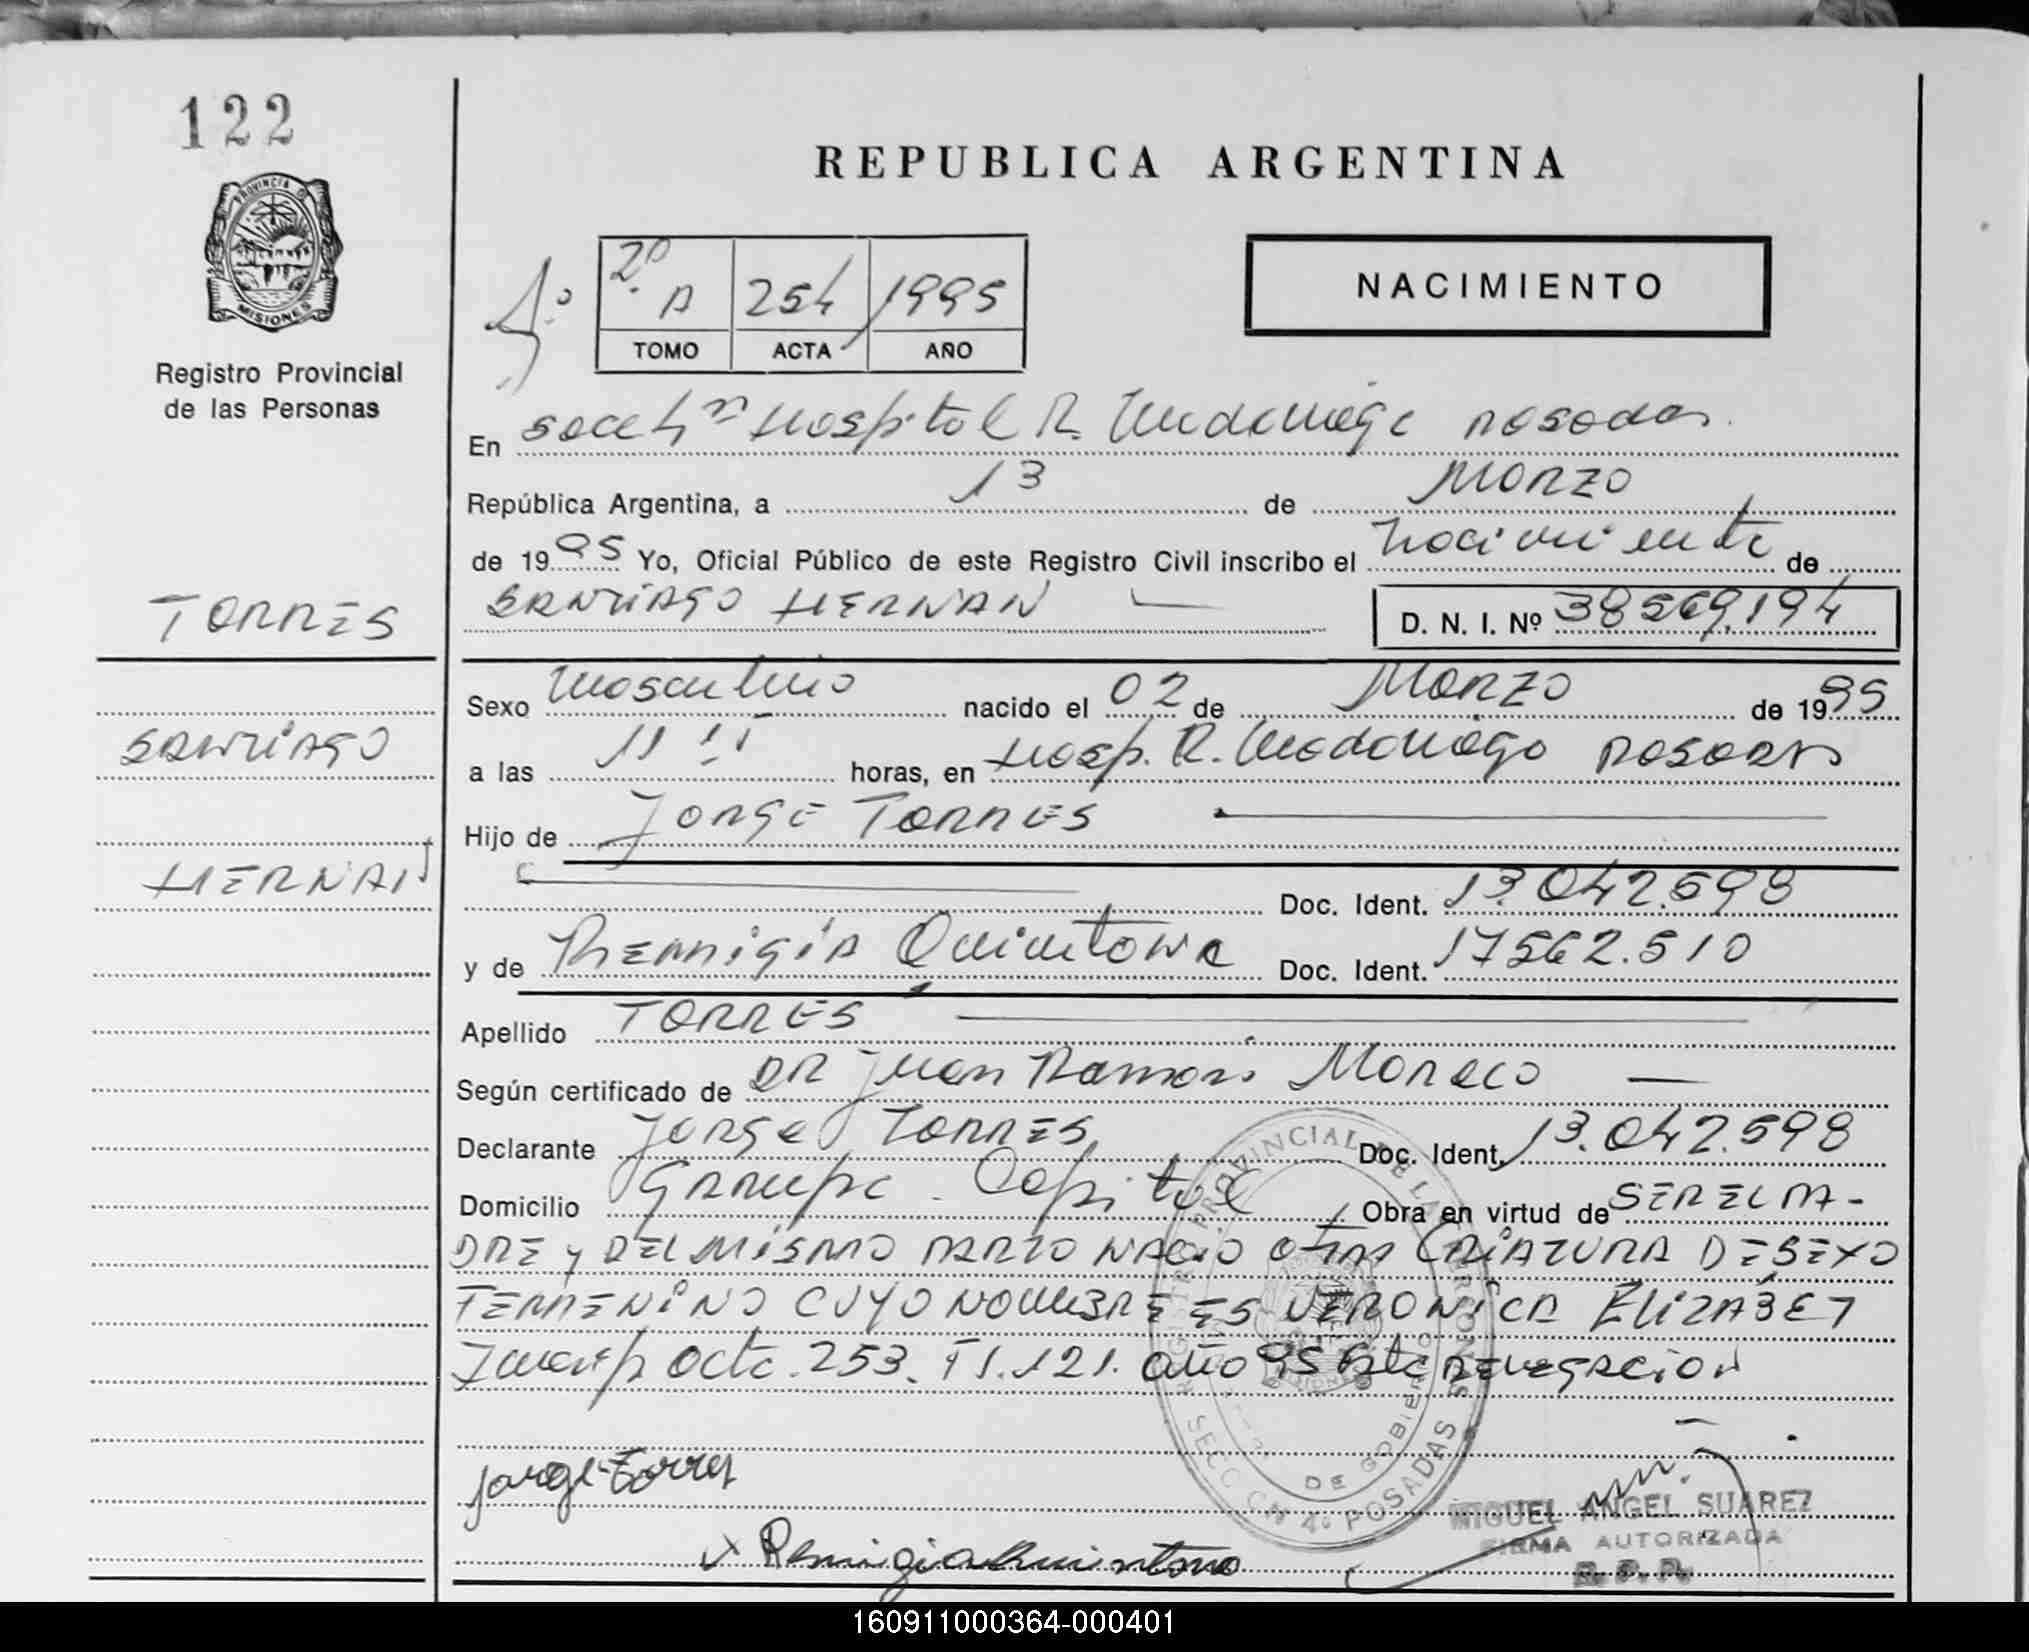 122
REPUBLICA ARGENTINA
PROVINCIA DE MISIONES
Registro Provincial
de las Personas
4º
2º A 254 1995
TOMO ACTA AÑO
NACIMIENTO
En Hospital R. Madariaga Posadas.
República Argentina, a 13 de Marzo
de 1995 Yo, Oficial Público de este Registro Civil inscribo el Nacimiento de
SANTIAGO HERNAN D. N. I. Nº 38569.194
TORRES
SANTIAGO
HERNAN
Sexo Masculino nacido el 02 de Marzo de 1995
a las 11 horas, en Hosp. R. Madariaga Posadas
Hijo de Jorge Torres
Doc. Ident. 13.042.598
y de Remigia Quintana Doc. Ident. 17562.510
Apellido TORRES
Según certificado de DR Juan Ramon
Declarante Jorge Torres Doc. Ident. 13.042.598
Domicilio Garupa. Capital Obra en virtud de SER EL PA-
DRE y DEL MISMO PARTO NACIO OTRA CRIATURA DE SEXO
FEMENINO CUYO NOMBRE ES VERONICA ELIZABET
Inscrip Acta. 253. Tº1. 121. Año 95 Esta DELEGACION
REGISTRO PROVINCIAL DE LAS PERSONAS
DE GOBIERNO
SECCON 4º POSADAS
Jorge Torres
x Remigia Quintana
MIGUEL ANGEL SUAREZ
FIRMA AUTORIZADA
R. P. P.
160911000364-000401